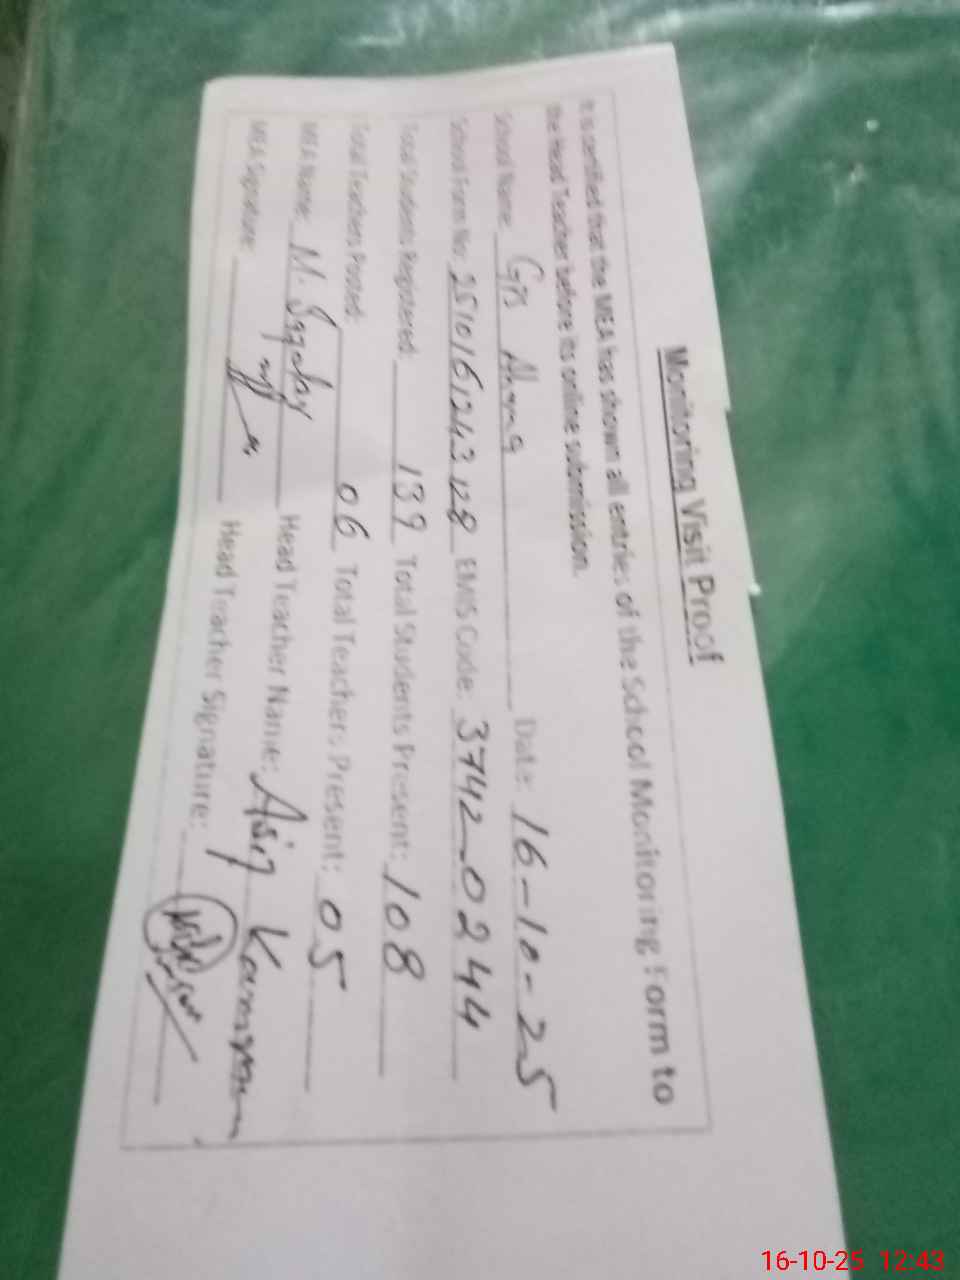 Monitoring Visit Proof
It is certified that the MEA has shown all entries of the School Monitoring Form to
the Head Teacher before its online submission.
School Name: Date: 16-10-25
School Form No: 251016124328 EMIS Code: 37420244
Total Students Registered: 139 Total Students Present: 108
Total Teachers Posted: 06 Total Teachers Present: 05
MEA Name: M. Head Teacher Name:
MEA Signature: Head Teacher Signature:
16-10-25 12:43